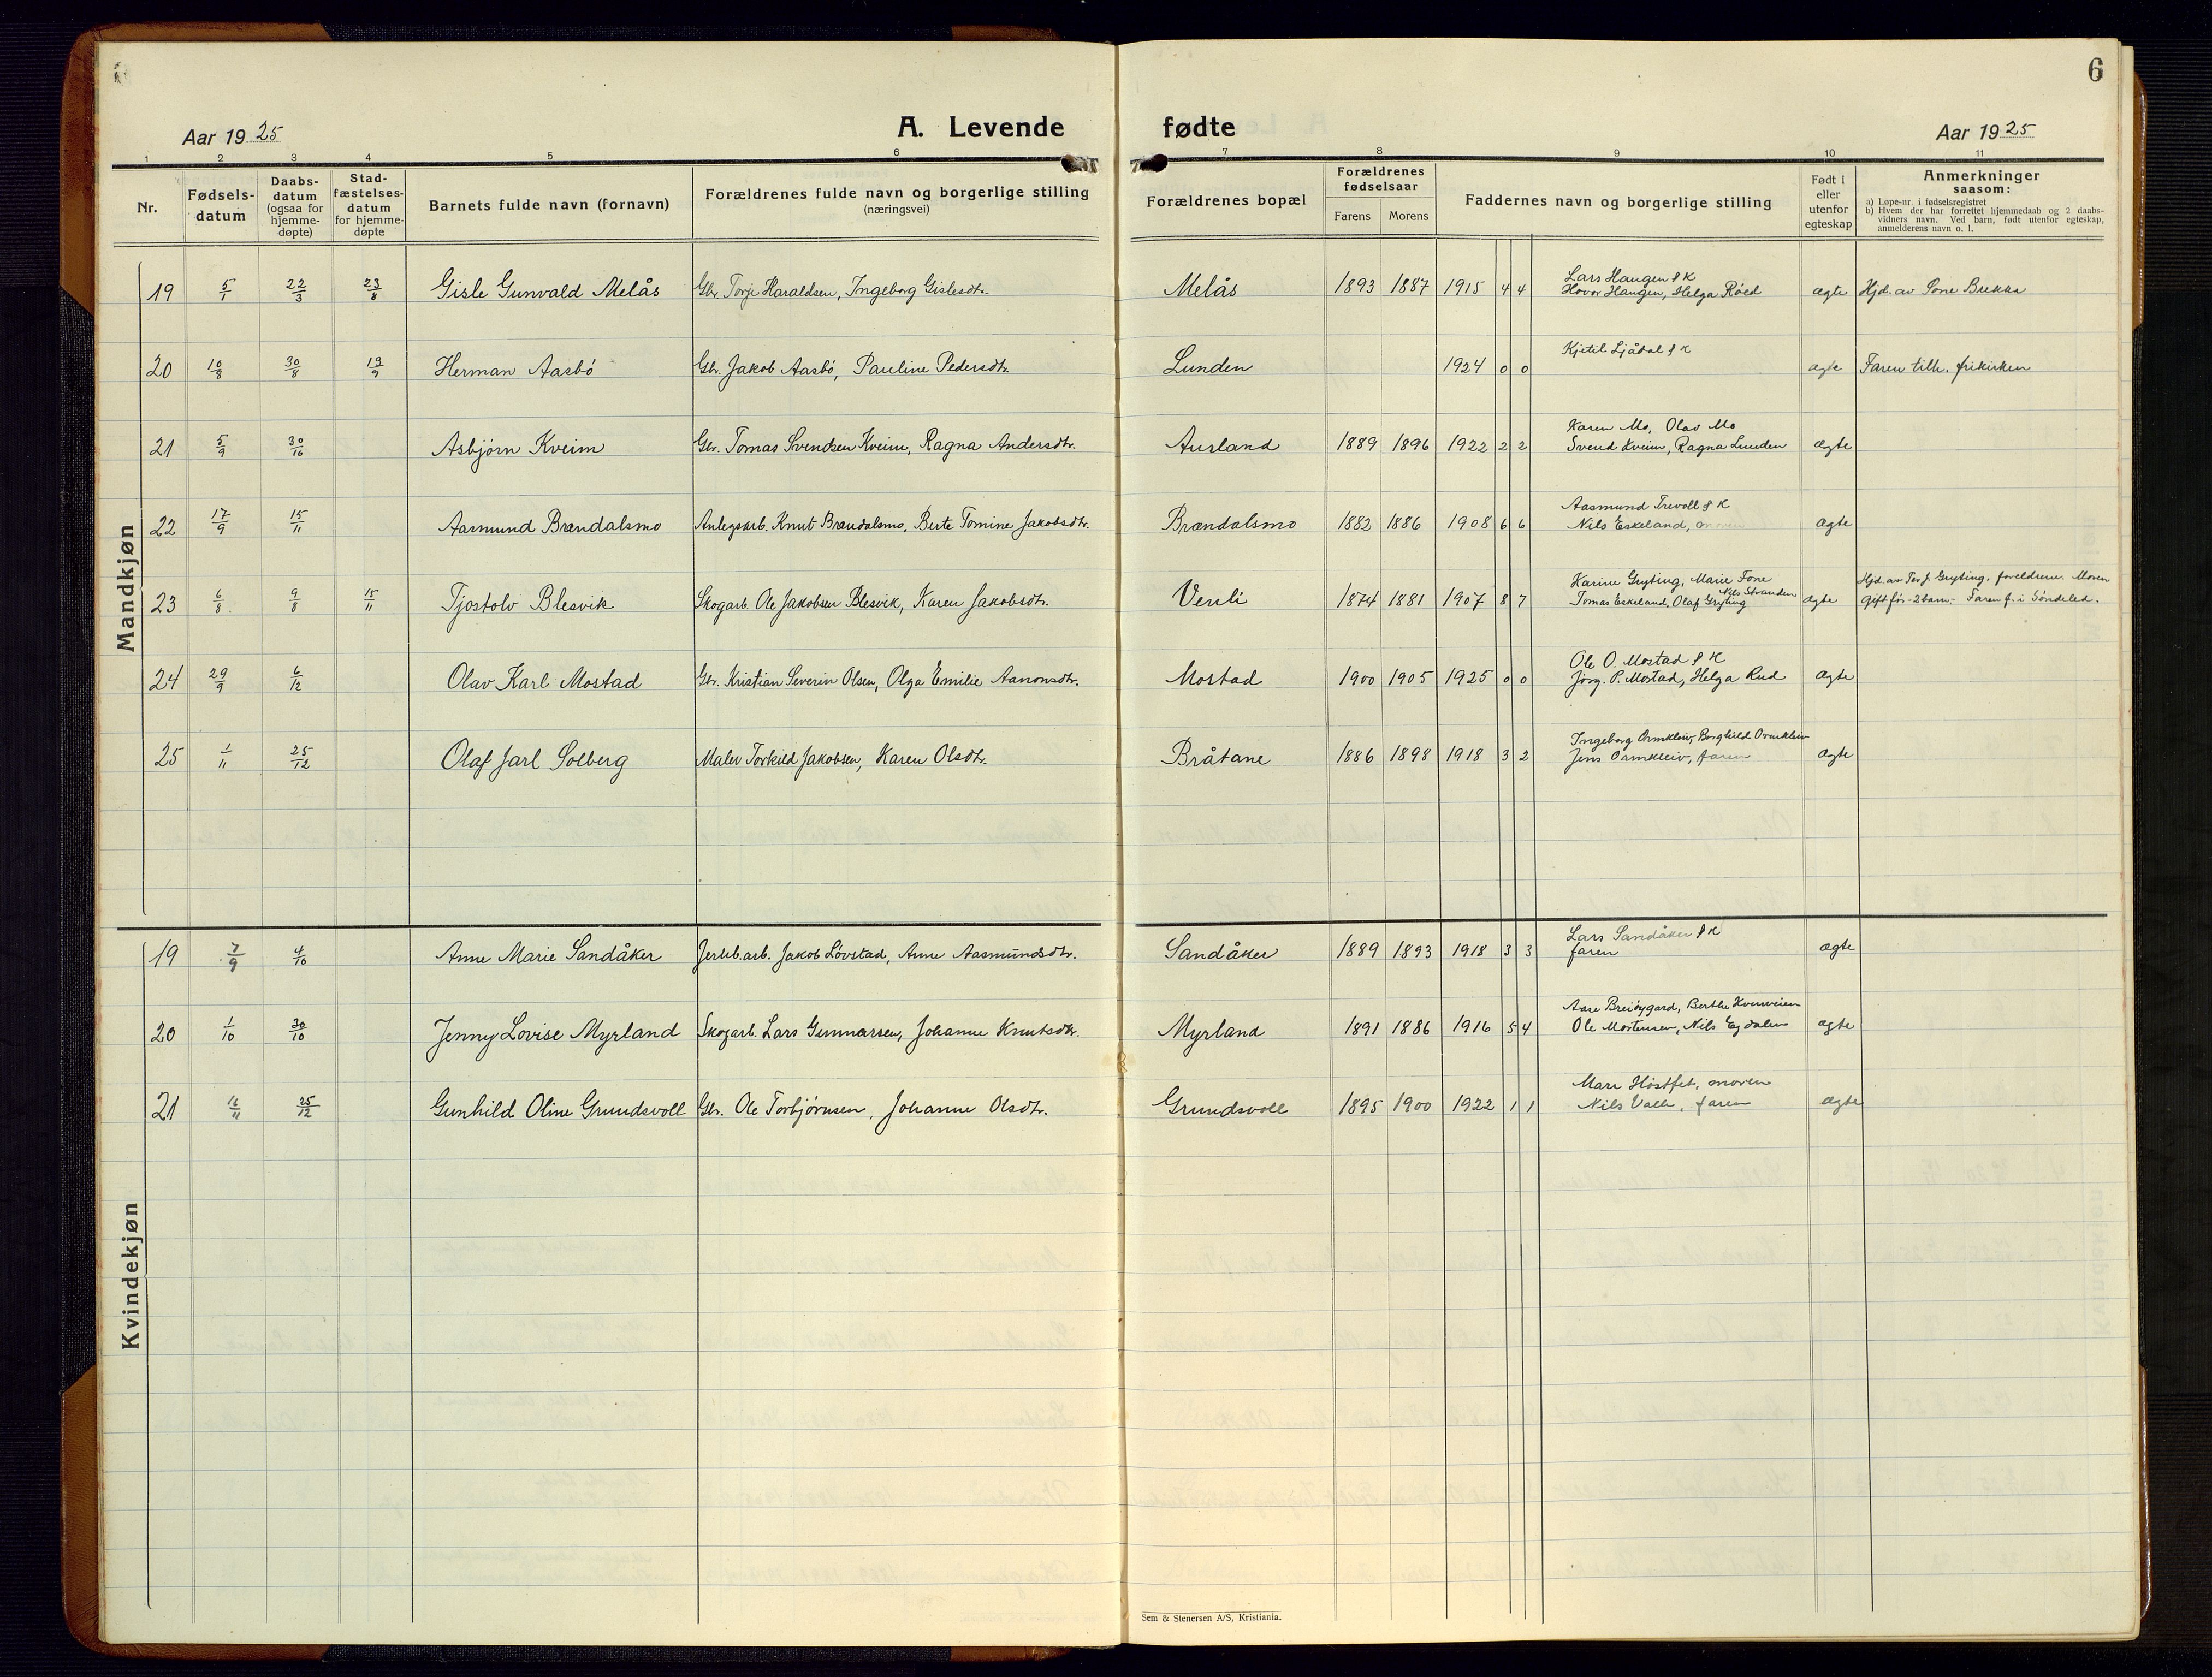 6
Aar 1925
A. Levende fødte
Aar 1925
1 2 3 4 5 6 7 8 9 10 11
Nr.
Fødsels-
datum
Daabs-
datum
(ogsaa for
hjemme-
døpte)
Stad-
fæstelses-
datum
for hjemme-
døpte
Barnets fulde navn (fornavn)
Forældrenes fulde navn og borgerlige stilling
(næringsvei)
Forældrenes bopæl
Forældrenes
fødselsaar
Farens Morens
Faddernes navn og borgerlige stilling
Født i
eller
utenfor
egteskap
Anmerkninger
saasom:
a) Løpe-nr. i fødselsregistret
b) Hvem der har forrettet hjemmedaab og 2 daabs-
vidners navn. Ved barn, født utenfor egteskap,
anmelderens navn o. l.
Mandkjøn
Lars Haugen & K
19 5/1 22/3 23/8 Gisle Gunvald Melås Gbr. Torje Haraldsen, Ingeborg Gislesdtr. Melås 1893 1887 1915 4 4 Hovor Haugen, Helga Röed ægte Hjd. av Tone Brekka
Kjetil Ljådal & K
20 10/8 30/8 13/9 Herman Aasbö Gbr. Jakob Aasbö, Pauline Pedersdtr. Lunden 1924 0 0 ægte Faren tilh. frikirken
Karen Mo, Olav Mo
21 5/9 30/10 Asbjørn Kveim Gbr. Tomas Svendsen Kveim, Ragna Andersdtr. Aurland 1889 1896 1922 2 2 Svend Kveim, Ragna Lunden ægte
Aasmund Trevoll & K
22 17/9 15/11 Aasmund Brændalsmo Anlegsarb. Knut Brændalsmo, Berte Tomine Jakobsdtr. Brændalsmo 1882 1886 1908 6 6 Nils Eskeland, moren ægte
Karine Gryting, Marie Fone Hjd. av Ter J. Gryting. foreldrene. Moren
Nils Stranden
23 6/8 9/8 15/11 Tjostolv Blesvik Skogarb. Ole Jakobsen Blesvik, Karen Jakobsdtr. Venli 1874 1881 1907 8 7 Tomas Eskeland, Olaf Gryting ægte gift før - 2 barn - Faren f. i Söndeled.
Ole O. Mostad & K
24 29/9 6/12 Olav Karl Mostad Gbr. Kristian Severin Olsen, Olga Emilie Aanonsdtr. Mostad 1900 1905 1925 0 0 Jörg. P. Mostad, Helga Rud ægte
Ingeborg Ormkleiv, Borghild Ormkleiv
25 1/11 25/12 Olaf Jarl Solberg Maler Torkild Jakobsen, Karen Olsdtr. Bråtane 1886 1898 1918 3 2 Jens Ormkleiv, faren ægte
Kvindekjøn
Lars Sandåker & K
19 7/9 4/10 Anne Marie Sandåker Jernb.arb. Jakob Lövstad, Anne Aasmundsdtr. Sandåker 1889 1893 1918 3 3 faren ægte
Aase Breidygard, Berthe Kvenveien
20 1/10 30/10 Jenny Lovise Myrland Skogarb. Lars Gunnarsen, Johanne Knutsdtr. Myrland 1891 1886 1916 5 4 Ole Mortensen, Nils Egdalen ægte
Mari Höstfet, moren
21 16/11 25/12 Gunhild Oline Grundsvoll Gbr. Ole Torbjörnsen, Johanne Olsdtr. Grundsvoll 1895 1900 1922 1 1 Nils Valle, faren ægte
Sem & Stenersen A/S, Kristiania.